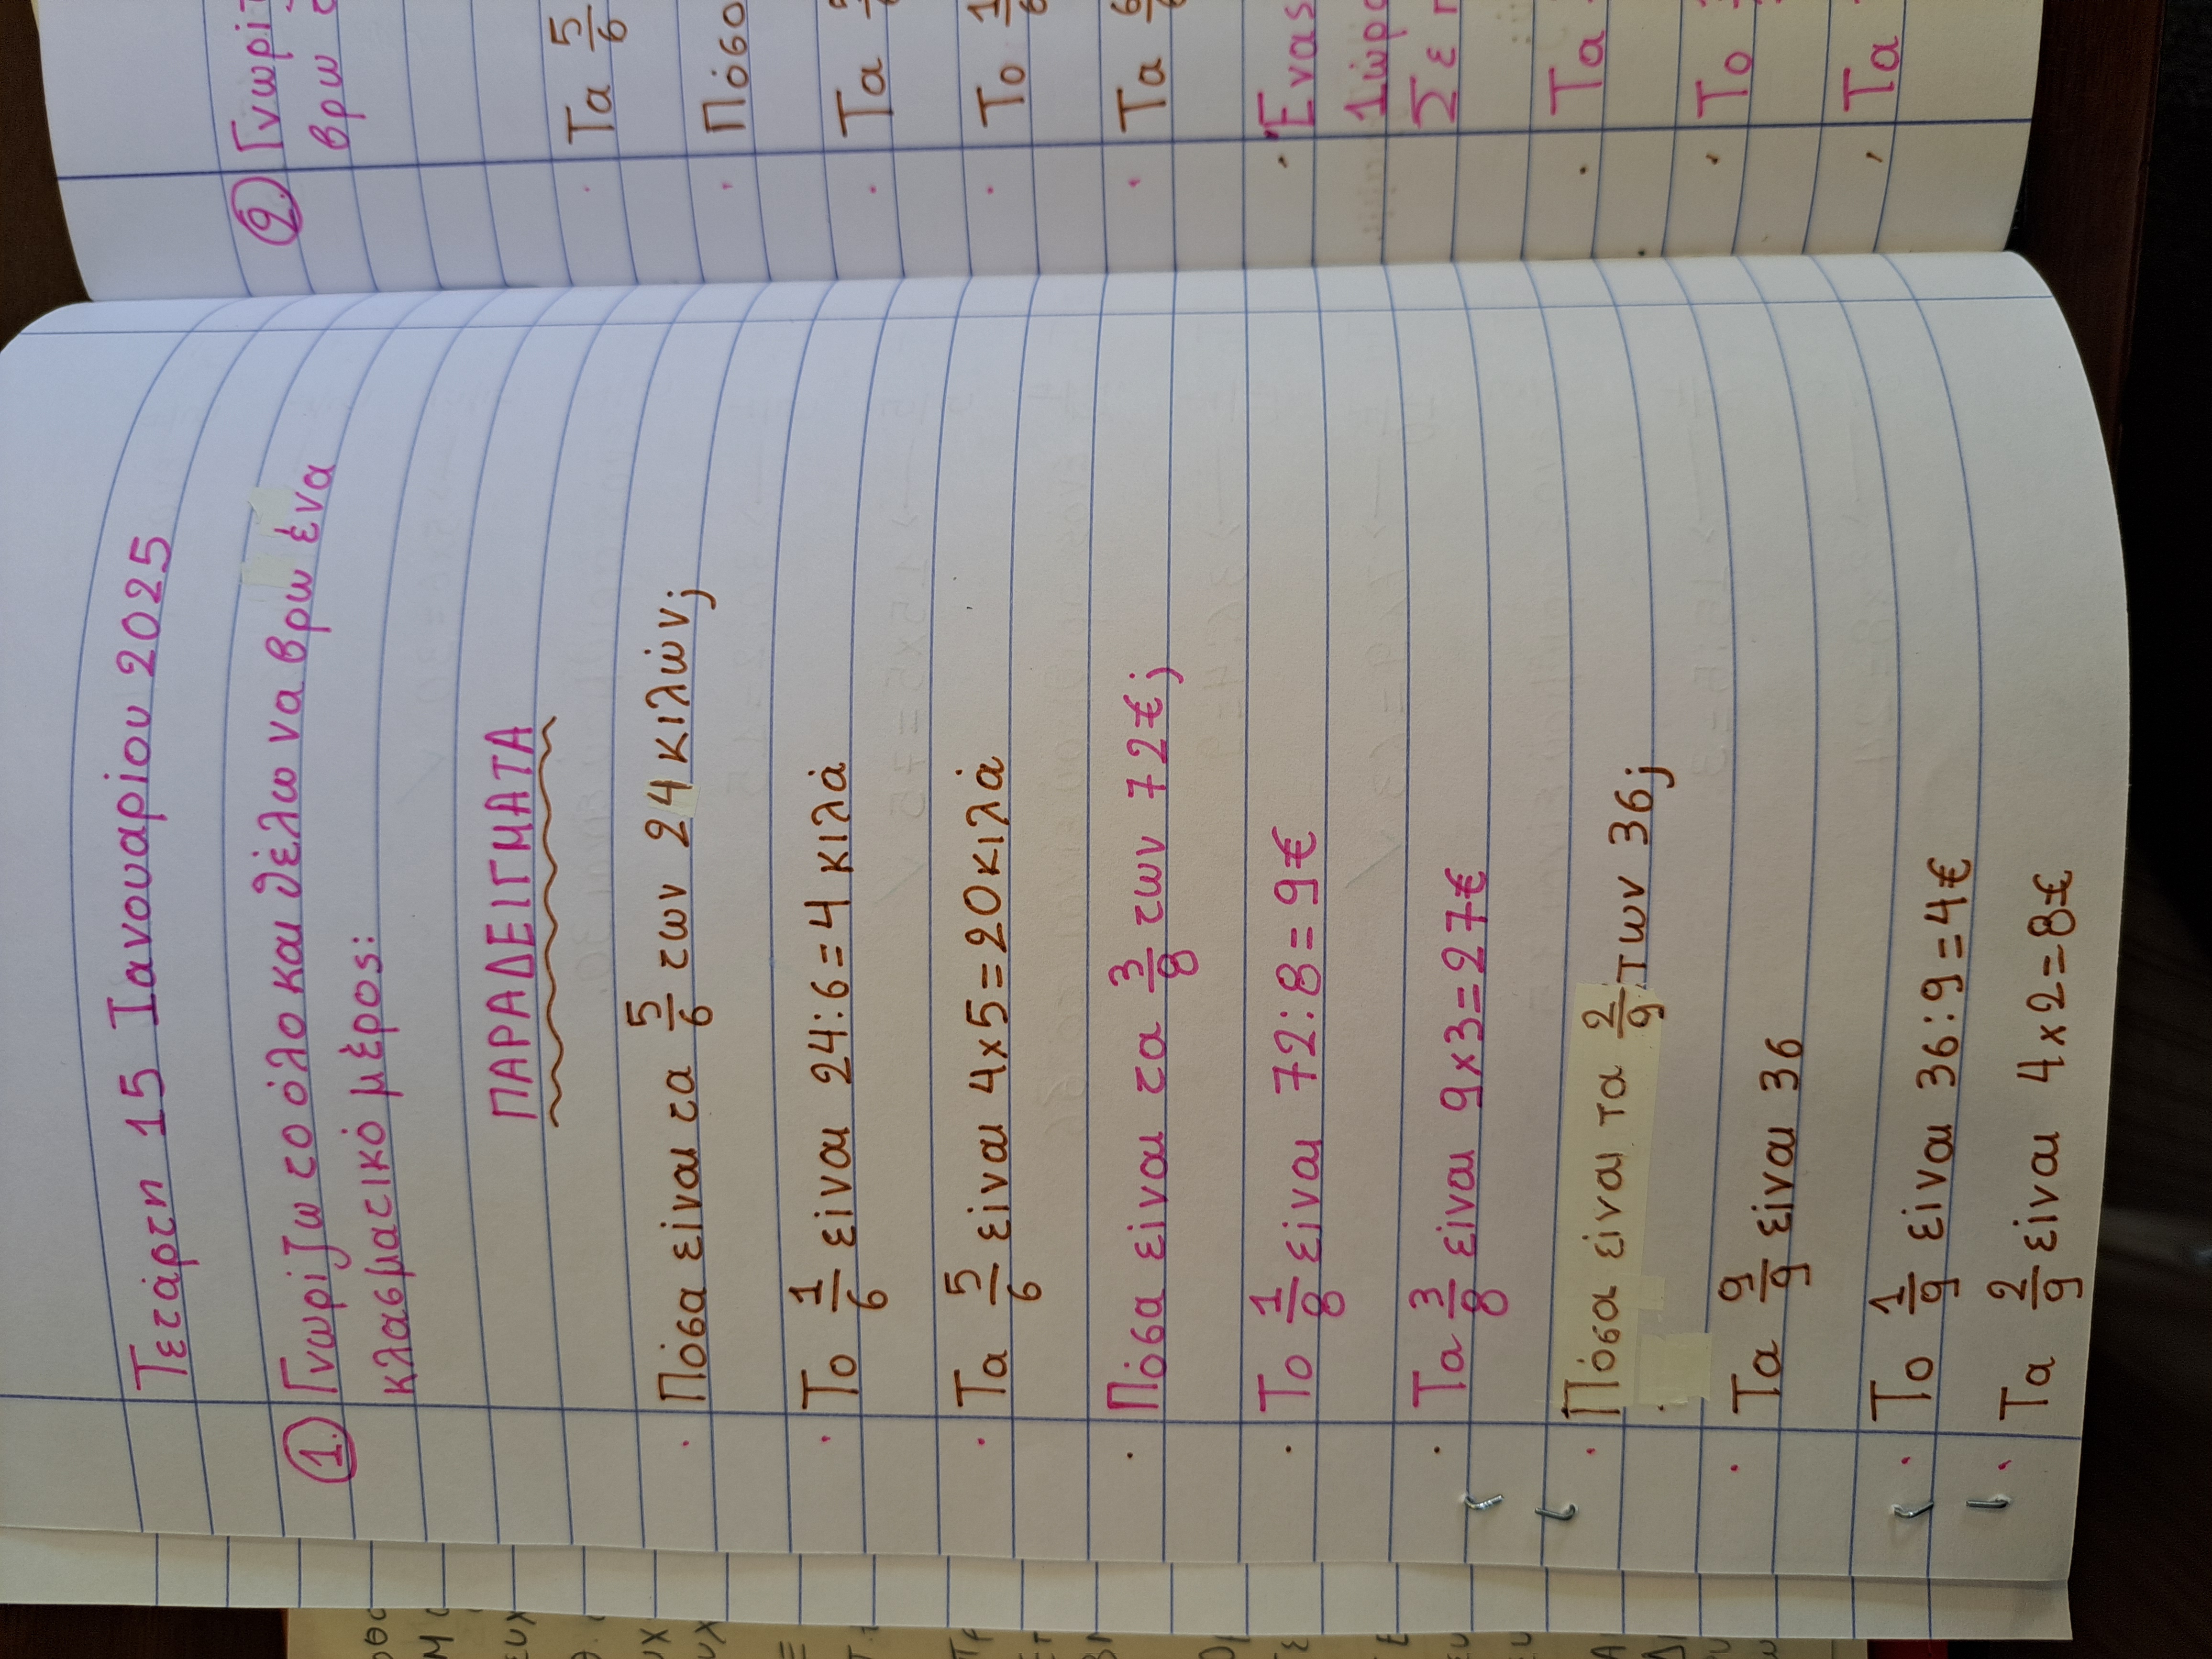 Τετάρτη 15 Ιανουαρίου 2025
1. Γνωρίζω το όλο και θέλω να βρω ένα
κλασματικό μέρος:
ΠΑΡΑΔΕΙΓΜΑΤΑ
· Πόσα είναι τα 5/6 των 24 κιλών;
· Το 1/6 είναι 24:6=4 κιλά
· Τα 5/6 είναι 4x5=20κιλά
· Πόσα είναι τα 3/8 των 72€;
· Το 1/8 είναι 72:8=9€
· Τα 3/8 είναι 9x3=27€
· Πόσα είναι τα 2/9 των 36;
· Τα 9/9 είναι 36
· Το 1/9 είναι 36:9=4€
· Τα 2/9 είναι 4x2=8€
2.
βρω
· Τα 5/6
·
· Τα
· Το
· Τα
· Ένας
Σε
· Τα
· Το
· Τα